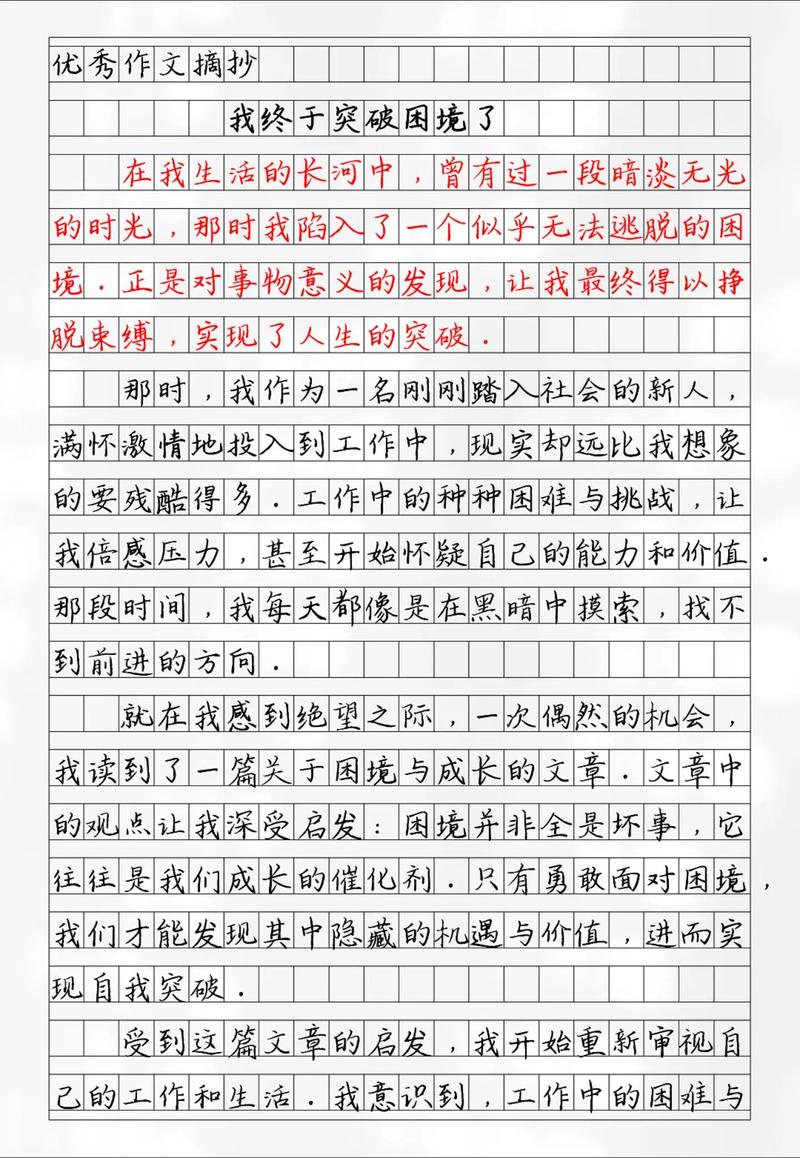 优秀作文摘抄
我终于突破困境了
在我生活的长河中，曾有过一段暗淡无光
的时光，那时我陷入了一个似乎无法逃脱的困
境．正是对事物意义的发现，让我最终得以挣
脱束缚，实现了人生的突破．
那时，我作为一名刚刚踏入社会的新人，
满怀激情地投入到工作中，现实却远比我想象
的要残酷得多．工作中的种种困难与挑战，让
我倍感压力，甚至开始怀疑自己的能力和价值．
那段时间，我每天都像是在黑暗中摸索，找不
到前进的方向．
就在我感到绝望之际，一次偶然的机会，
我读到了一篇关于困境与成长的文章．文章中
的观点让我深受启发：困境并非全是坏事，它
往往是我们成长的催化剂．只有勇敢面对困境，
我们才能发现其中隐藏的机遇与价值，进而实
现自我突破．
受到这篇文章的启发，我开始重新审视自
己的工作和生活．我意识到，工作中的困难与